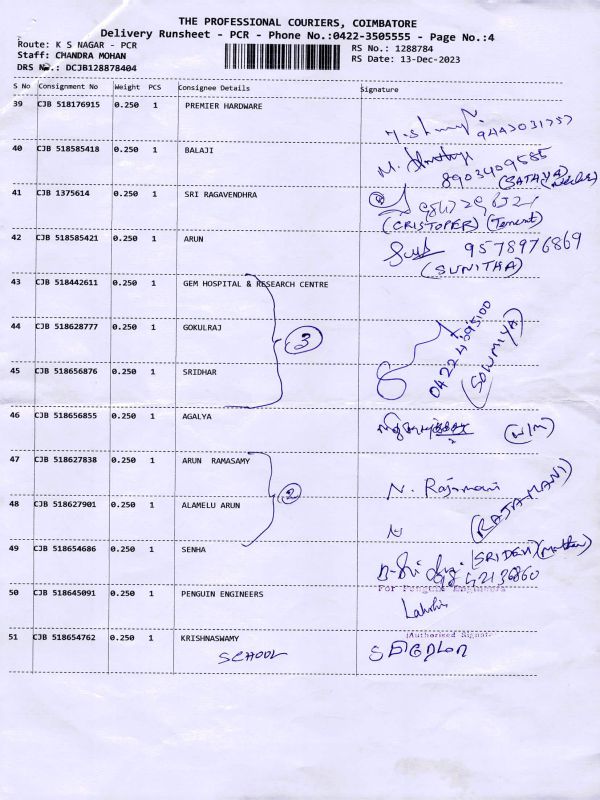 THE PROFESSIONAL COURIERS, COIMBATORE
Delivery Runsheet - PCR - Phone No.:0422-3505555 - Page No.:4
Route: K S NAGAR - PCR
RS No.: 1288784
Staff: CHANDRA MOHAN
RS Date: 13-Dec-2023
DRS No.: DCJB128878404
S No Consignment No Weight PCS Consignee Details Signature
39 CJB 518176915 0.250 1 PREMIER HARDWARE
9443031757
40 CJB 518585418 0.250 1 BALAJI
M.
8903409585
(SATHYA)
41 CJB 1375614 0.250 1 SRI RAGAVENDHRA
(CRISTOPER) (Tenent)
42 CJB 518585421 0.250 1 ARUN
9578976869
(SUNITHA)
43 CJB 518442611 0.250 1 GEM HOSPITAL & RESEARCH CENTRE
44 CJB 518628777 0.250 1 GOKULRAJ
3
(SOWMIYA)
45 CJB 518656876 0.250 1 SRIDHAR
46 CJB 518656855 0.250 1 AGALYA
(W/M)
47 CJB 518627838 0.250 1 ARUN RAMASAMY
N. Rajamani
2
(RAJAMANI)
48 CJB 518627901 0.250 1 ALAMELU ARUN
N
49 CJB 518654686 0.250 1 SENHA
(SRIDEVI) (mother)
50 CJB 518645091 0.250 1 PENGUIN ENGINEERS
For Penguin Engineers
51 CJB 518654762 0.250 1 KRISHNASWAMY
SCHOOL